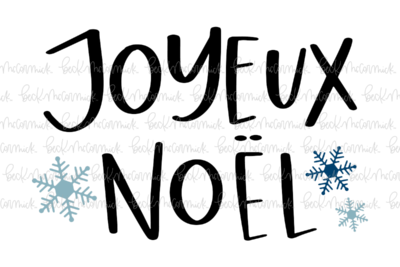 JOYEUX
NOËL